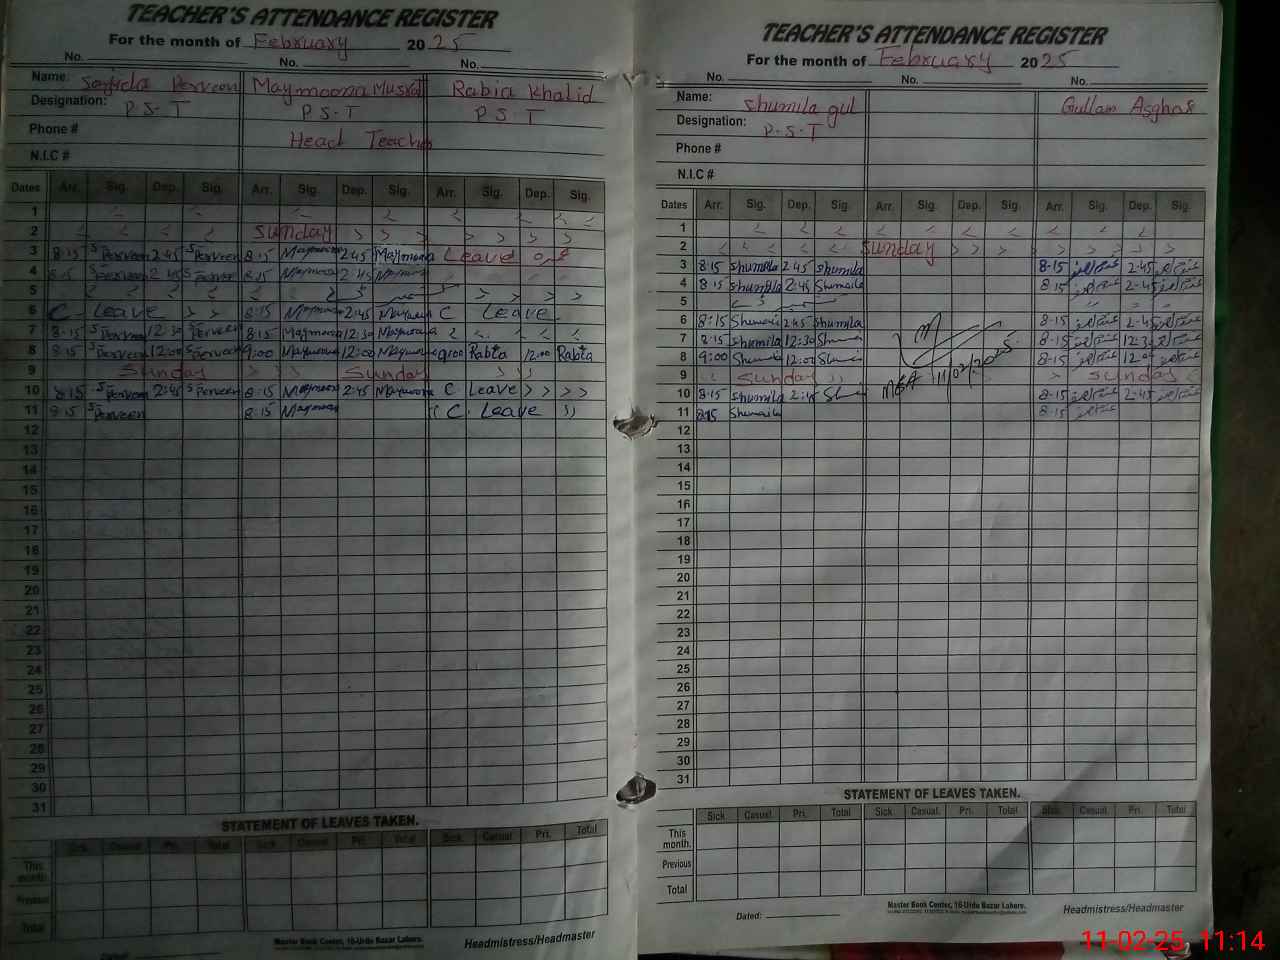 TEACHER'S ATTENDANCE REGISTER
For the month of February 2025
No. No. No.
Name: Sajida Perveen Maymoona Musrat Rabia Khalid
Designation: P.S.T P.S.T P.S.T
Phone # Head Teacher
N.I.C #
Dates Arr. Sig. Dep. Sig. Arr. Sig. Dep. Sig. Arr. Sig. Dep. Sig.
1
2 Sunday
3 8.15 S Perveen 2.45 S Perveen 8.15 Maymoona 2.45 Maymoona Leave
4 8.15 S Perveen 2.45 S Perveen 8.15 Maymoona 2.45 Maymoona
5
6 C. Leave 8.15 Maymoona 2.45 Maymoona C Leave
7 8.15 S Perveen 12:30 S Perveen 8.15 Maymoona 12:30 Maymoona
8 8.15 S Perveen 12:00 S Perveen 9:00 Maymoona 12:00 Maymoona 9:00 Rabia 12:00 Rabia
9 Sunday Sunday
10 8.15 S Perveen 2.45 S Perveen 8.15 Maymoona 2.45 Maymoona C Leave
11 8.15 S Perveen 8.15 Maymoona C. Leave
12
13
14
15
16
17
18
19
20
21
22
23
24
25
26
27
28
29
30
31
STATEMENT OF LEAVES TAKEN.
Sick. Casual. Pri. Total Sick. Casual. Pri. Total Sick. Casual. Pri. Total
This month.
Previous
Total
Master Book Center, 16-Urdu Bazar Lahore.
Headmistress/Headmaster
Dated:
TEACHER'S ATTENDANCE REGISTER
For the month of February 2025
No. No. No.
Name: Shumila gul Gullam Asghar
Designation: P.S.T
Phone #
N.I.C #
Dates Arr. Sig. Dep. Sig. Arr. Sig. Dep. Sig. Arr. Sig. Dep. Sig.
1
2 Sunday
3 8.15 Shumila 2.45 Shumila 8.15 2.45
4 8.15 Shumila 2.45 Shumaila 8.15 2.45
5
6 8:15 Shumaila 2.45 Shumila 8.15 2.45
7 8.15 Shumila 12:30 8.15 12.30
8 9:00 12:00 8.15
9 Sunday Sunday
10 8.15 Shumila 2.45 8.15 2.45
11 8.15 Shumaila 8.15
MEA 11/02/2025
12
13
14
15
16
17
18
19
20
21
22
23
24
25
26
27
28
29
30
31
STATEMENT OF LEAVES TAKEN.
Sick. Casual. Pri. Total Sick. Casual. Pri. Total Sick. Casual. Pri. Total
This month.
Previous
Total
Dated:
Master Book Center, 16-Urdu Bazar Lahore.
Headmistress/Headmaster
11-02-25 11:14